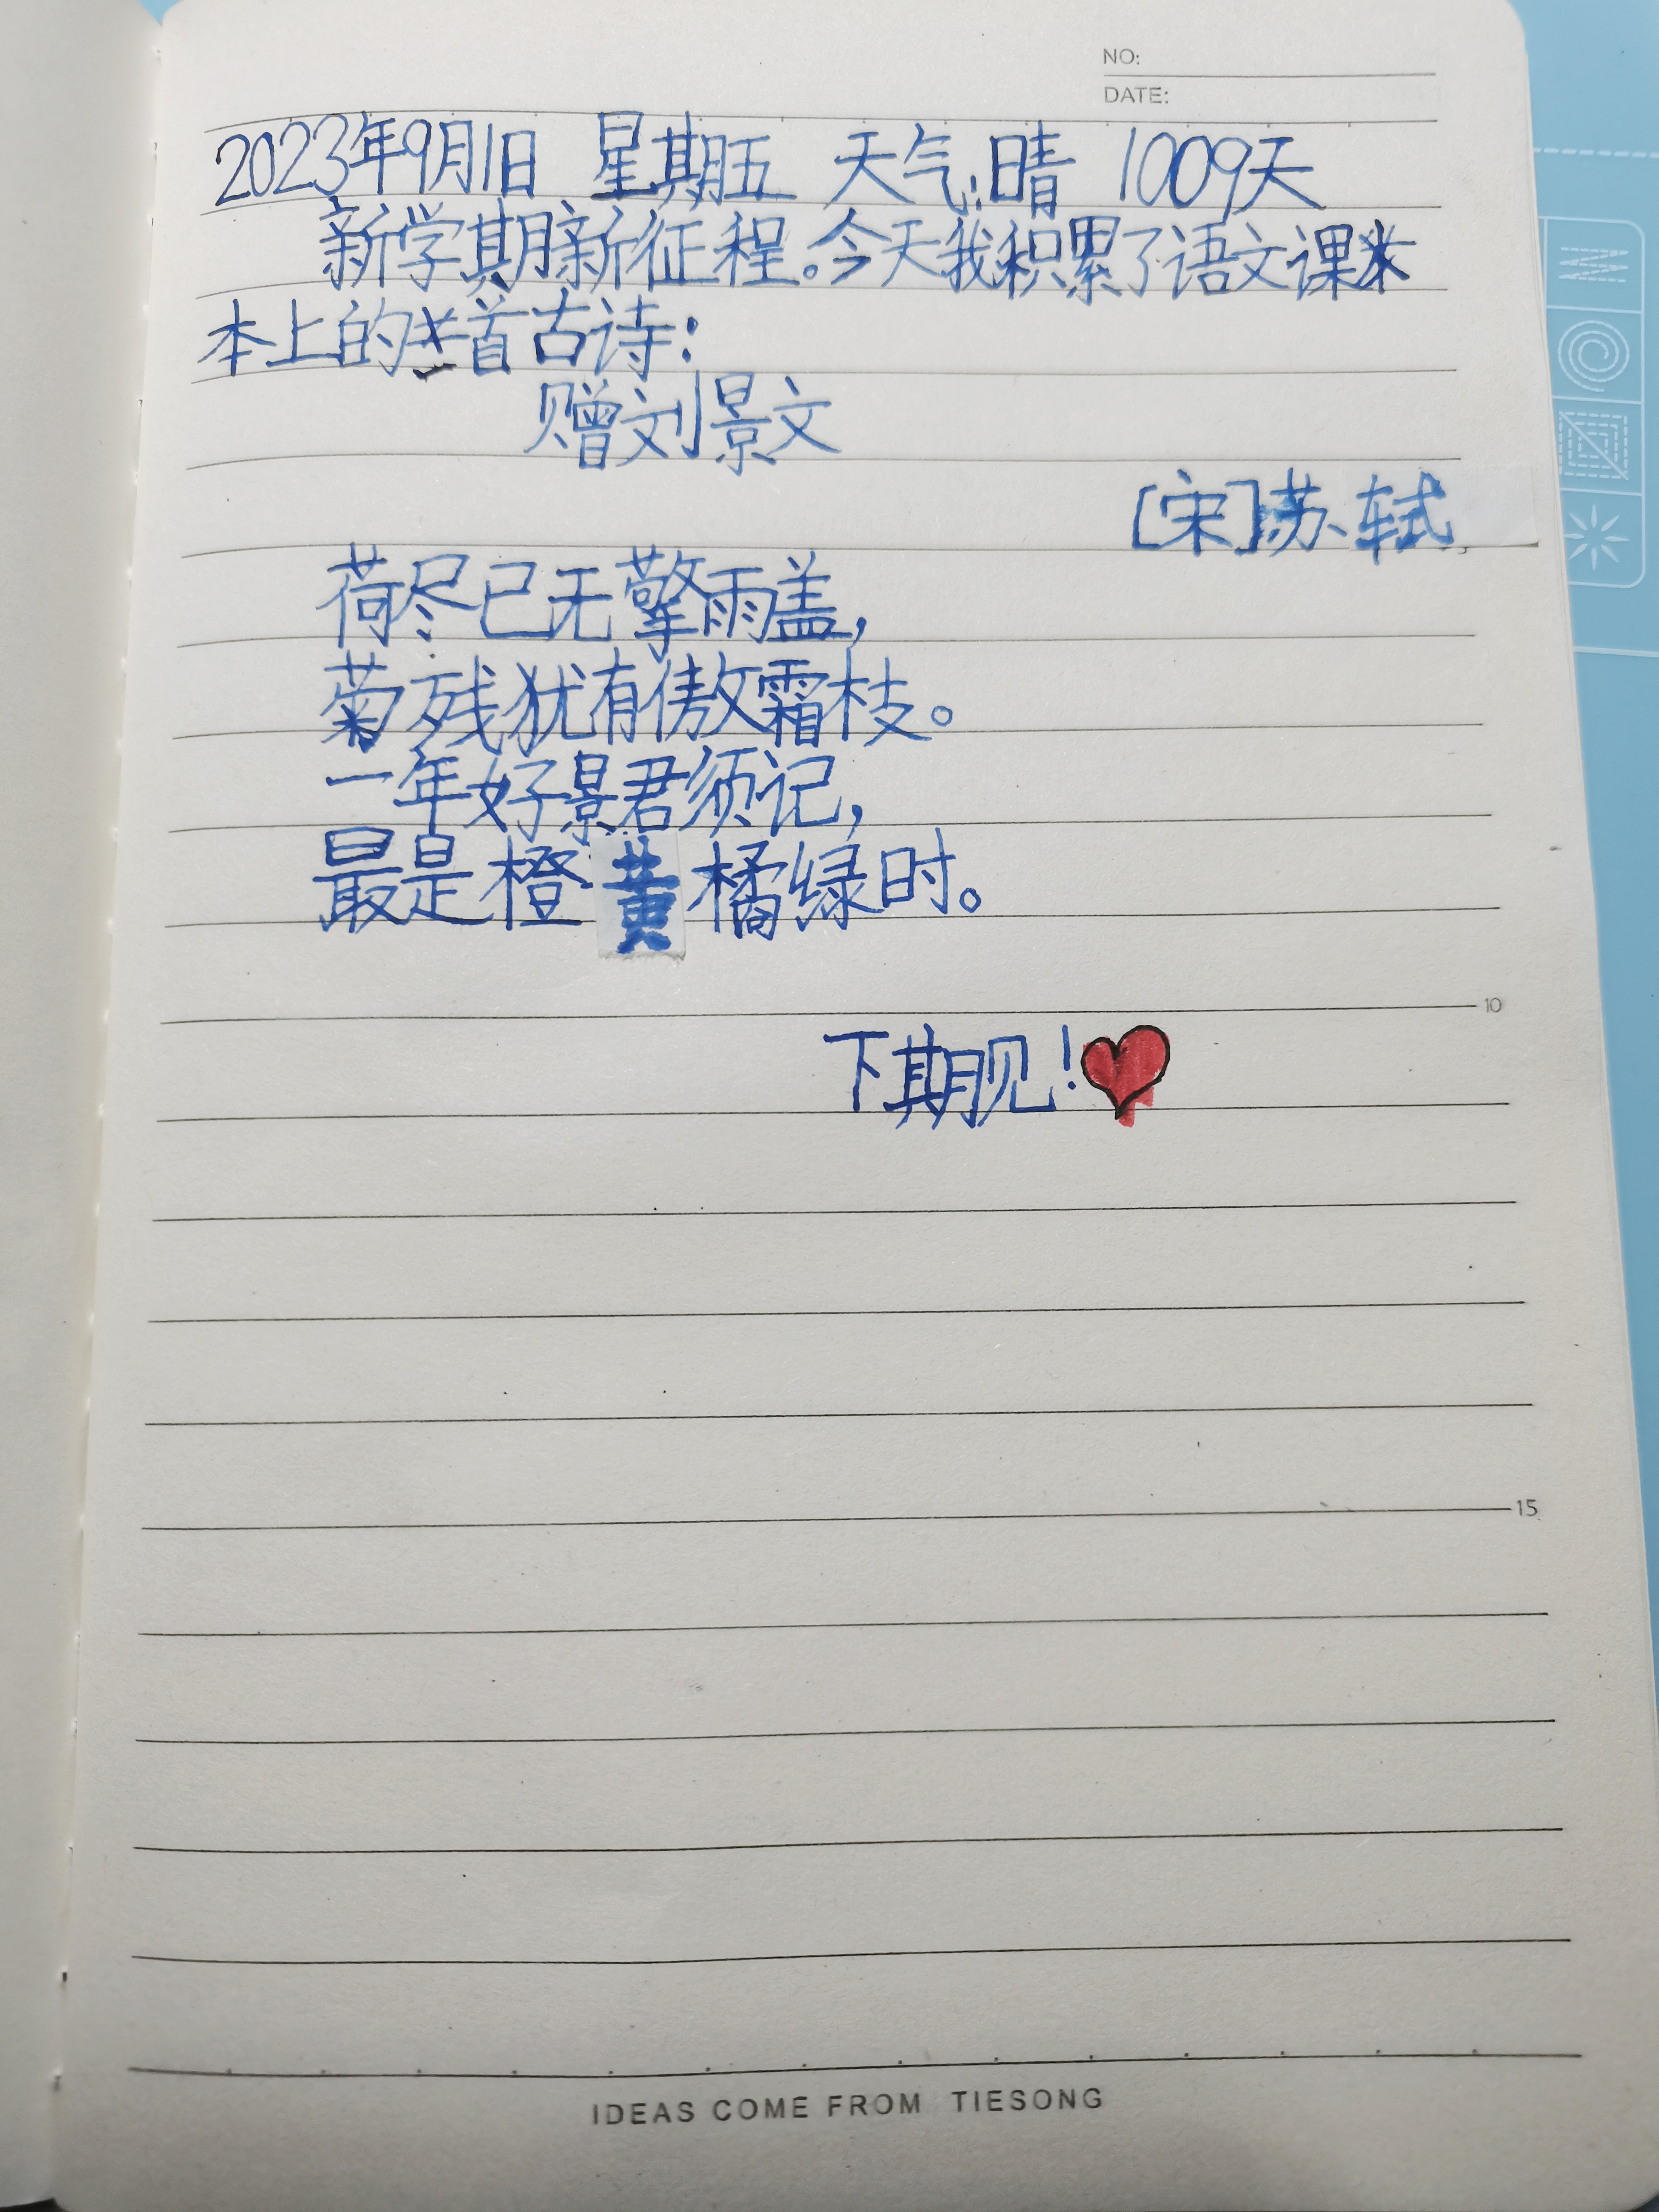 NO:
DATE:
2023年9月1日 星期五 天气:晴 1009天
新学期新征程。今天我积累了语文课
本上的首古诗:
赠刘景文
[宋]苏轼
荷尽已无擎雨盖,
菊残犹有傲霜枝。
一年好景君须记,
最是橙黄橘绿时。
10
下期见!
15
IDEAS COME FROM TIESONG